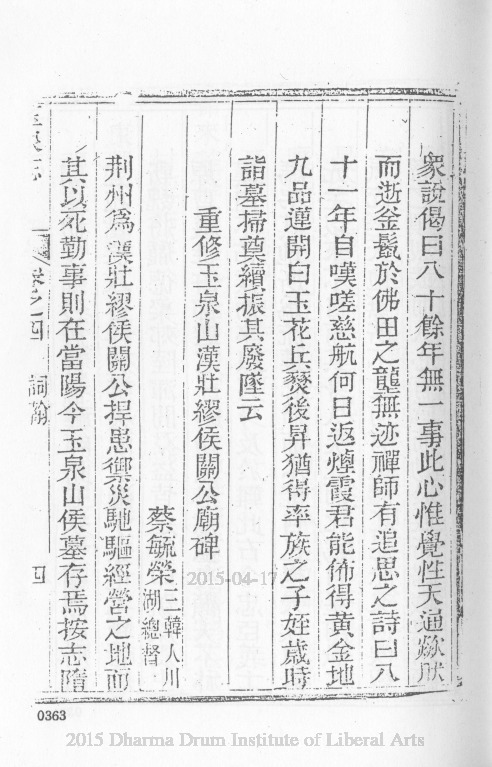 衆說偈曰八十餘年無一事此心惟覺性天通歘肰
而逝釜鬵於佛田之龍無迹禪師有追思之詩曰八
十一年自嘆嗟慈航何日返煙霞君能佈得黃金地
九品蓮開白玉花丘嫠後昇猶得率族之子姪歲時
詣墓掃奠續振其廢墜云
重修玉泉山漢壯繆侯關公廟碑
蔡毓榮三韓人川湖總督
荆州爲漢壯繆侯關公捍患禦災馳驅經營之地而
其以死勤事則在當陽今玉泉山侯墓存焉按志隋
卷之四 詞翰 四
2015-04-17
0363
2015 Dharma Drum Institute of Liberal Arts